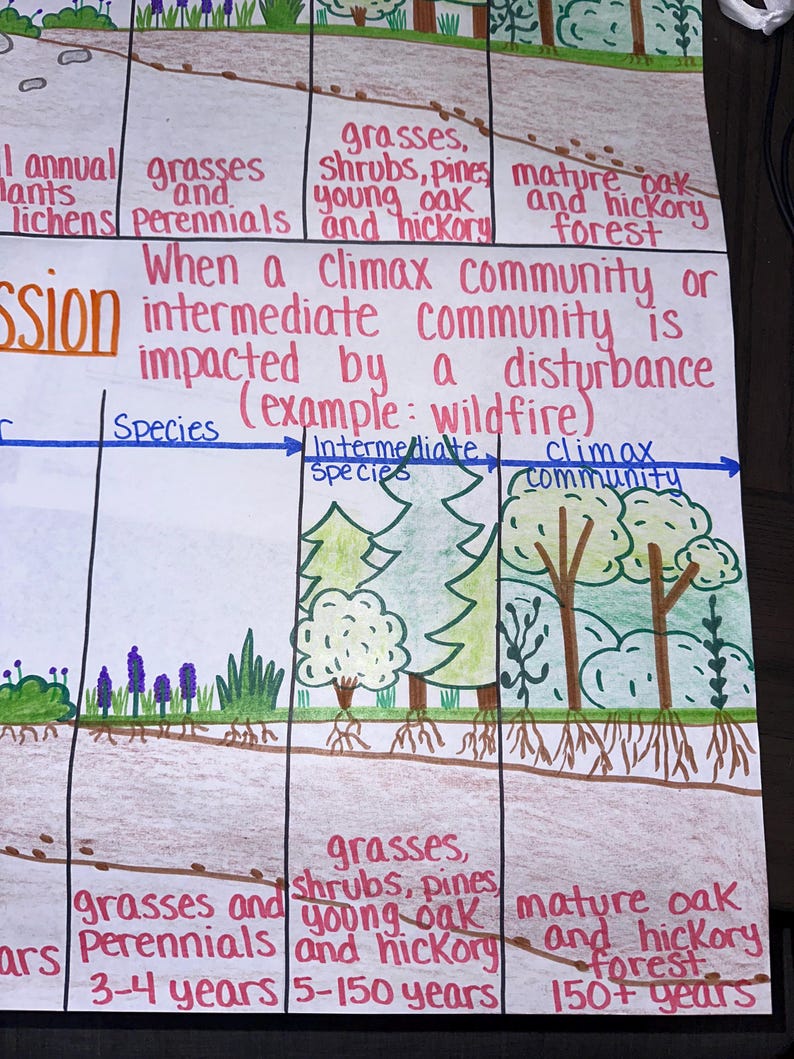 l annual
lants
lichens
grasses
and
perennials
grasses,
shrubs, pines
young oak
and hickory
mature oak
and hickory
forest
ssion
When a climax community or
intermediate community is
impacted by a disturbance
(example: wildfire)
r
Species
Intermediate
species
climax
community
ars
grasses and
Perennials
3-4 years
grasses,
shrubs, pines,
young oak
and hickory
5-150 years
mature oak
and hickory
forest
150+ years